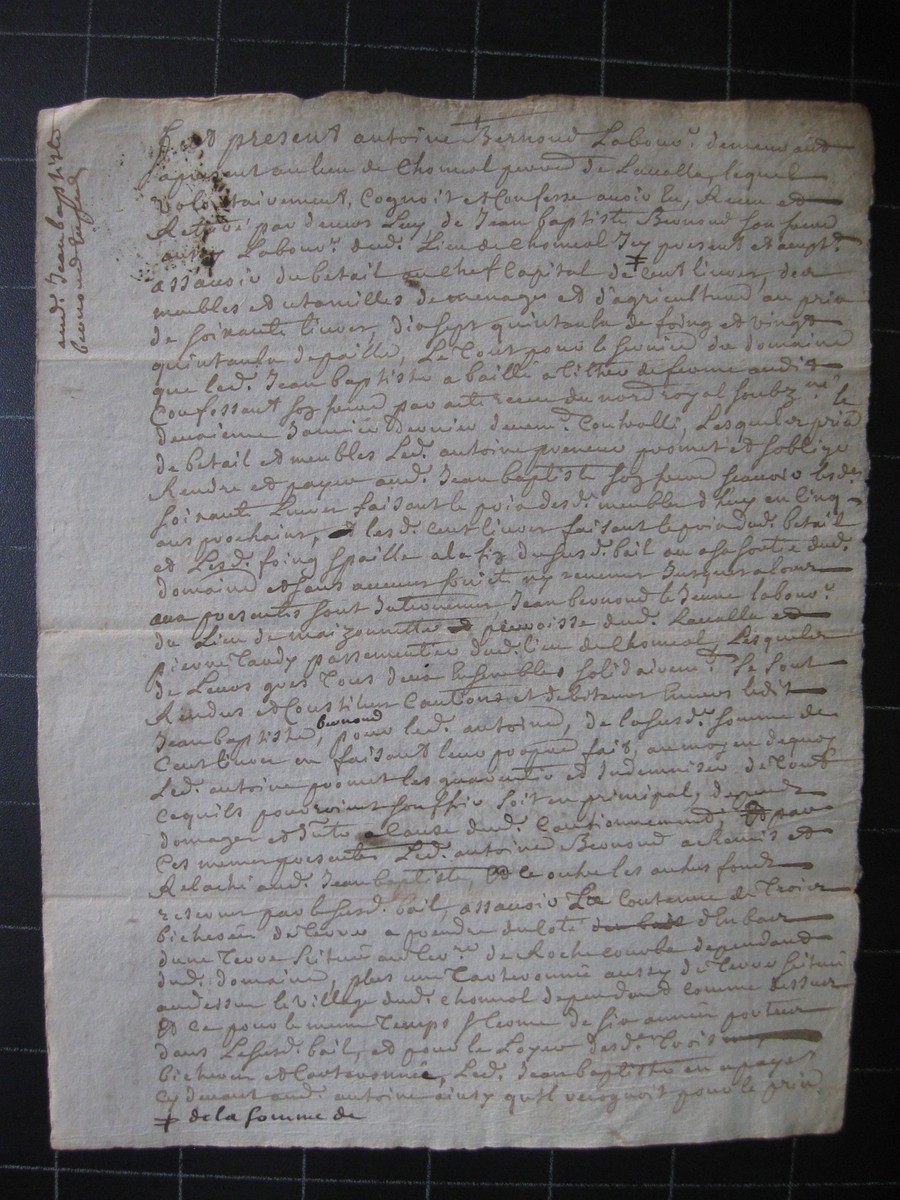 aud. Jean baptiste
bernond
fut present antoine Bernond Labour. demeurant
apresent au lieu de Chomiol parr.e de Lavalla, lequel
volontairement, Cognoit et Confesse avoir Eu, Receu et
Retiré par devers Luy, de Jean baptiste Bernond son frere
aussy Labour. dud. Lieu de Chomiol Icy present et accept.
assavoir du betail en Chef Capital de ‡ Cent livres, des
meubles et utansilles de menages et d'agriculture, au prix
de soixante livres, dixsept quintaula de foing et vingt
quintaula de paille, Le Tout pour le service du domaine
que led. Jean baptiste a baillé a titre de ferme audit
Confessant son frere par acte receu du no.re royal soubz.né le
deuxieme Janvier dernier Controllé, Lesquels prix
de betail et meubles Led. antoine preneur promet et s'oblige
Rendre et payer aud. Jean baptiste son frere scavoir lesd.
soixante Livres faisant le prix desd. meubles d'huy en cinq
ans prochains, lesd. Cent livres faisant le prix dud. betail
et Lesd. foing & paille a la fin du susd. bail ou a sa sortie dud.
domaine et sans aucuns jusques alors
aux presentes sont Intervenus Jean bernond le Jeune labour.
du Lieu de maizonnette parroisse dud. Lavalla et
pierre Tardy passementier dud. lieu de Chomiol, Lesquels
de Leurs grés Tous deux Ensembles solidairem.t se sont
Rendus et Constitués Cautions et debiteurs Envers ledit
Jean baptiste bernond, pour led. antoine, de la susd. somme de
Cent livres en faisant leur propre fait, au moyen dequoy
Led. antoine promet les guarentir et Indemniser de tout
ce qu'ils pourroient souffrir soit en principal, depends
domages et Intr. a Cause dud. Cautionnement Et par
Ces memes presentes Led. antoine Bernond a Remis et
Relaché aud. Jean baptiste, & ce outre les autres fonds
reservés par le susd. bail, assavoir La Contenue de Troies
bicherées de Terre a prendre du coté d'En bas
d'une Terre scituée au Terr. de Rochecourbe dependant
dud. domaine, plus une Carteronnée aussy de Terre scitué
au dessus le village dud. Chomiol dependant comme dessus
Et ce pour le meme Temps & Terme de six années portées
dans Lesusd. bail, et pour le Loyer desd. Trois
bicherées et Carteronnée, Led. Jean baptiste en a payé
Cy devant aud. antoine ainsy qu'il recognoit pour le prix
‡ de la somme de